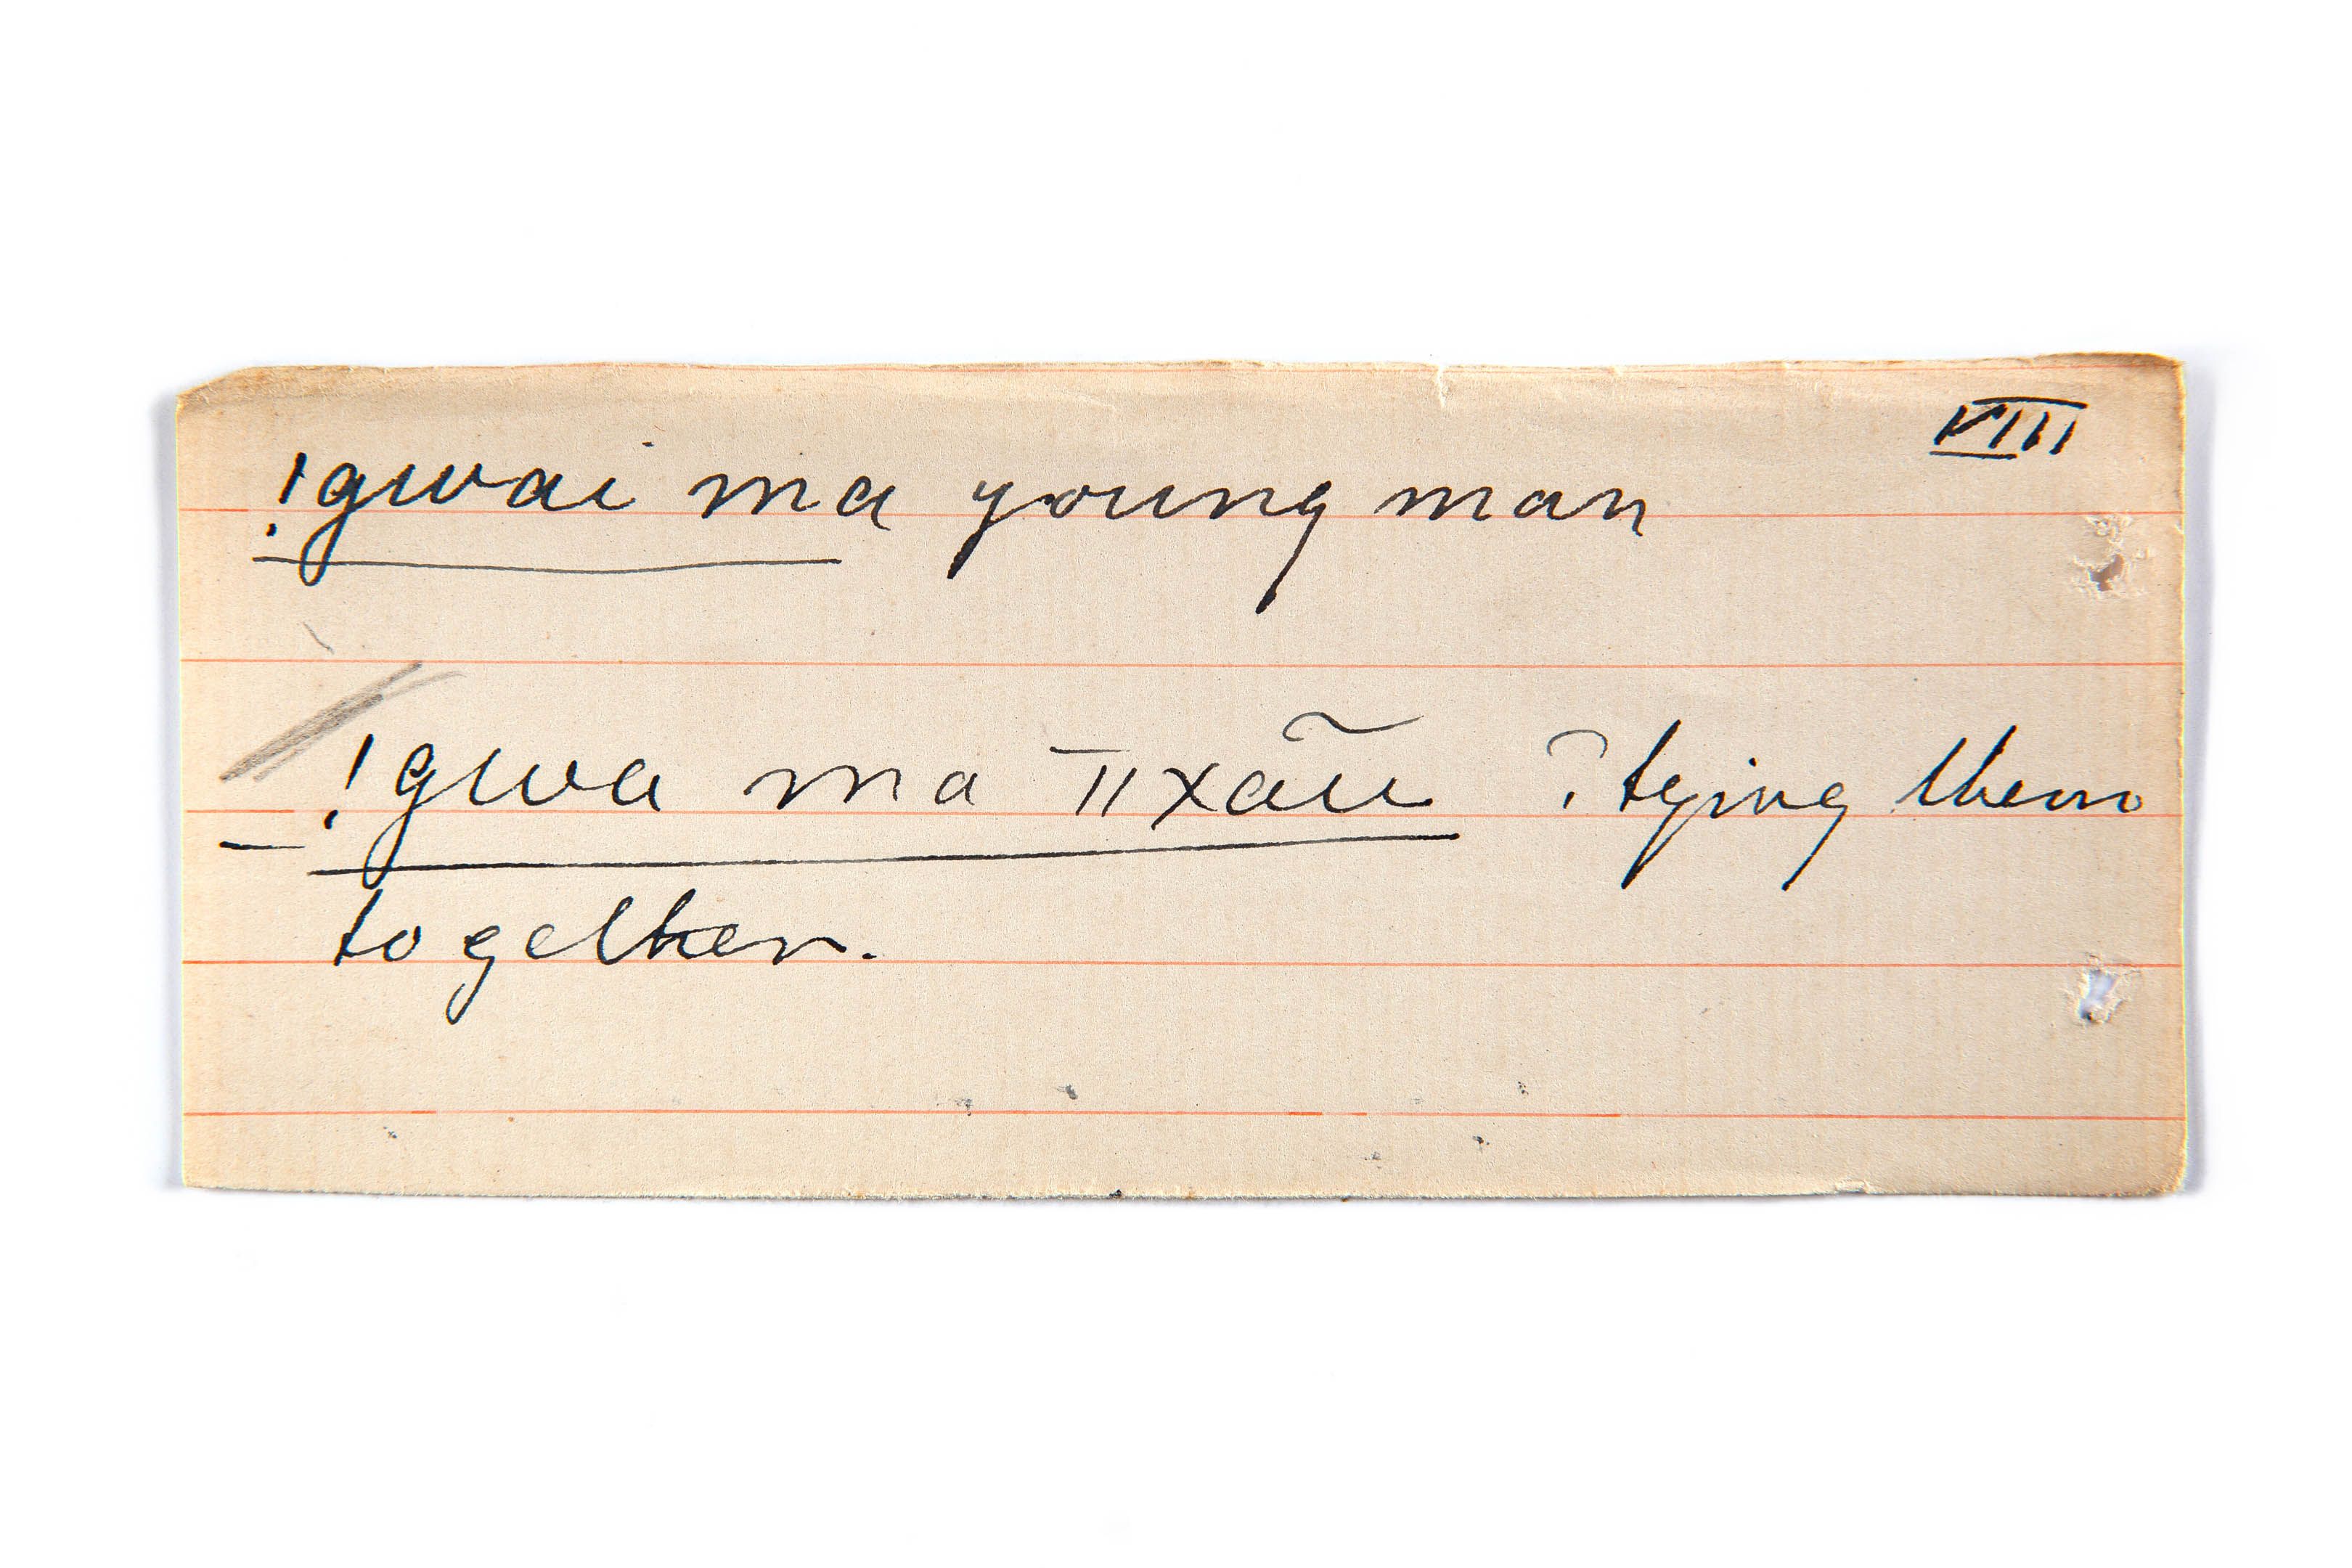 VIII
!gwai ma young man
!gwa ma ‖xaũ ? tying them
together.